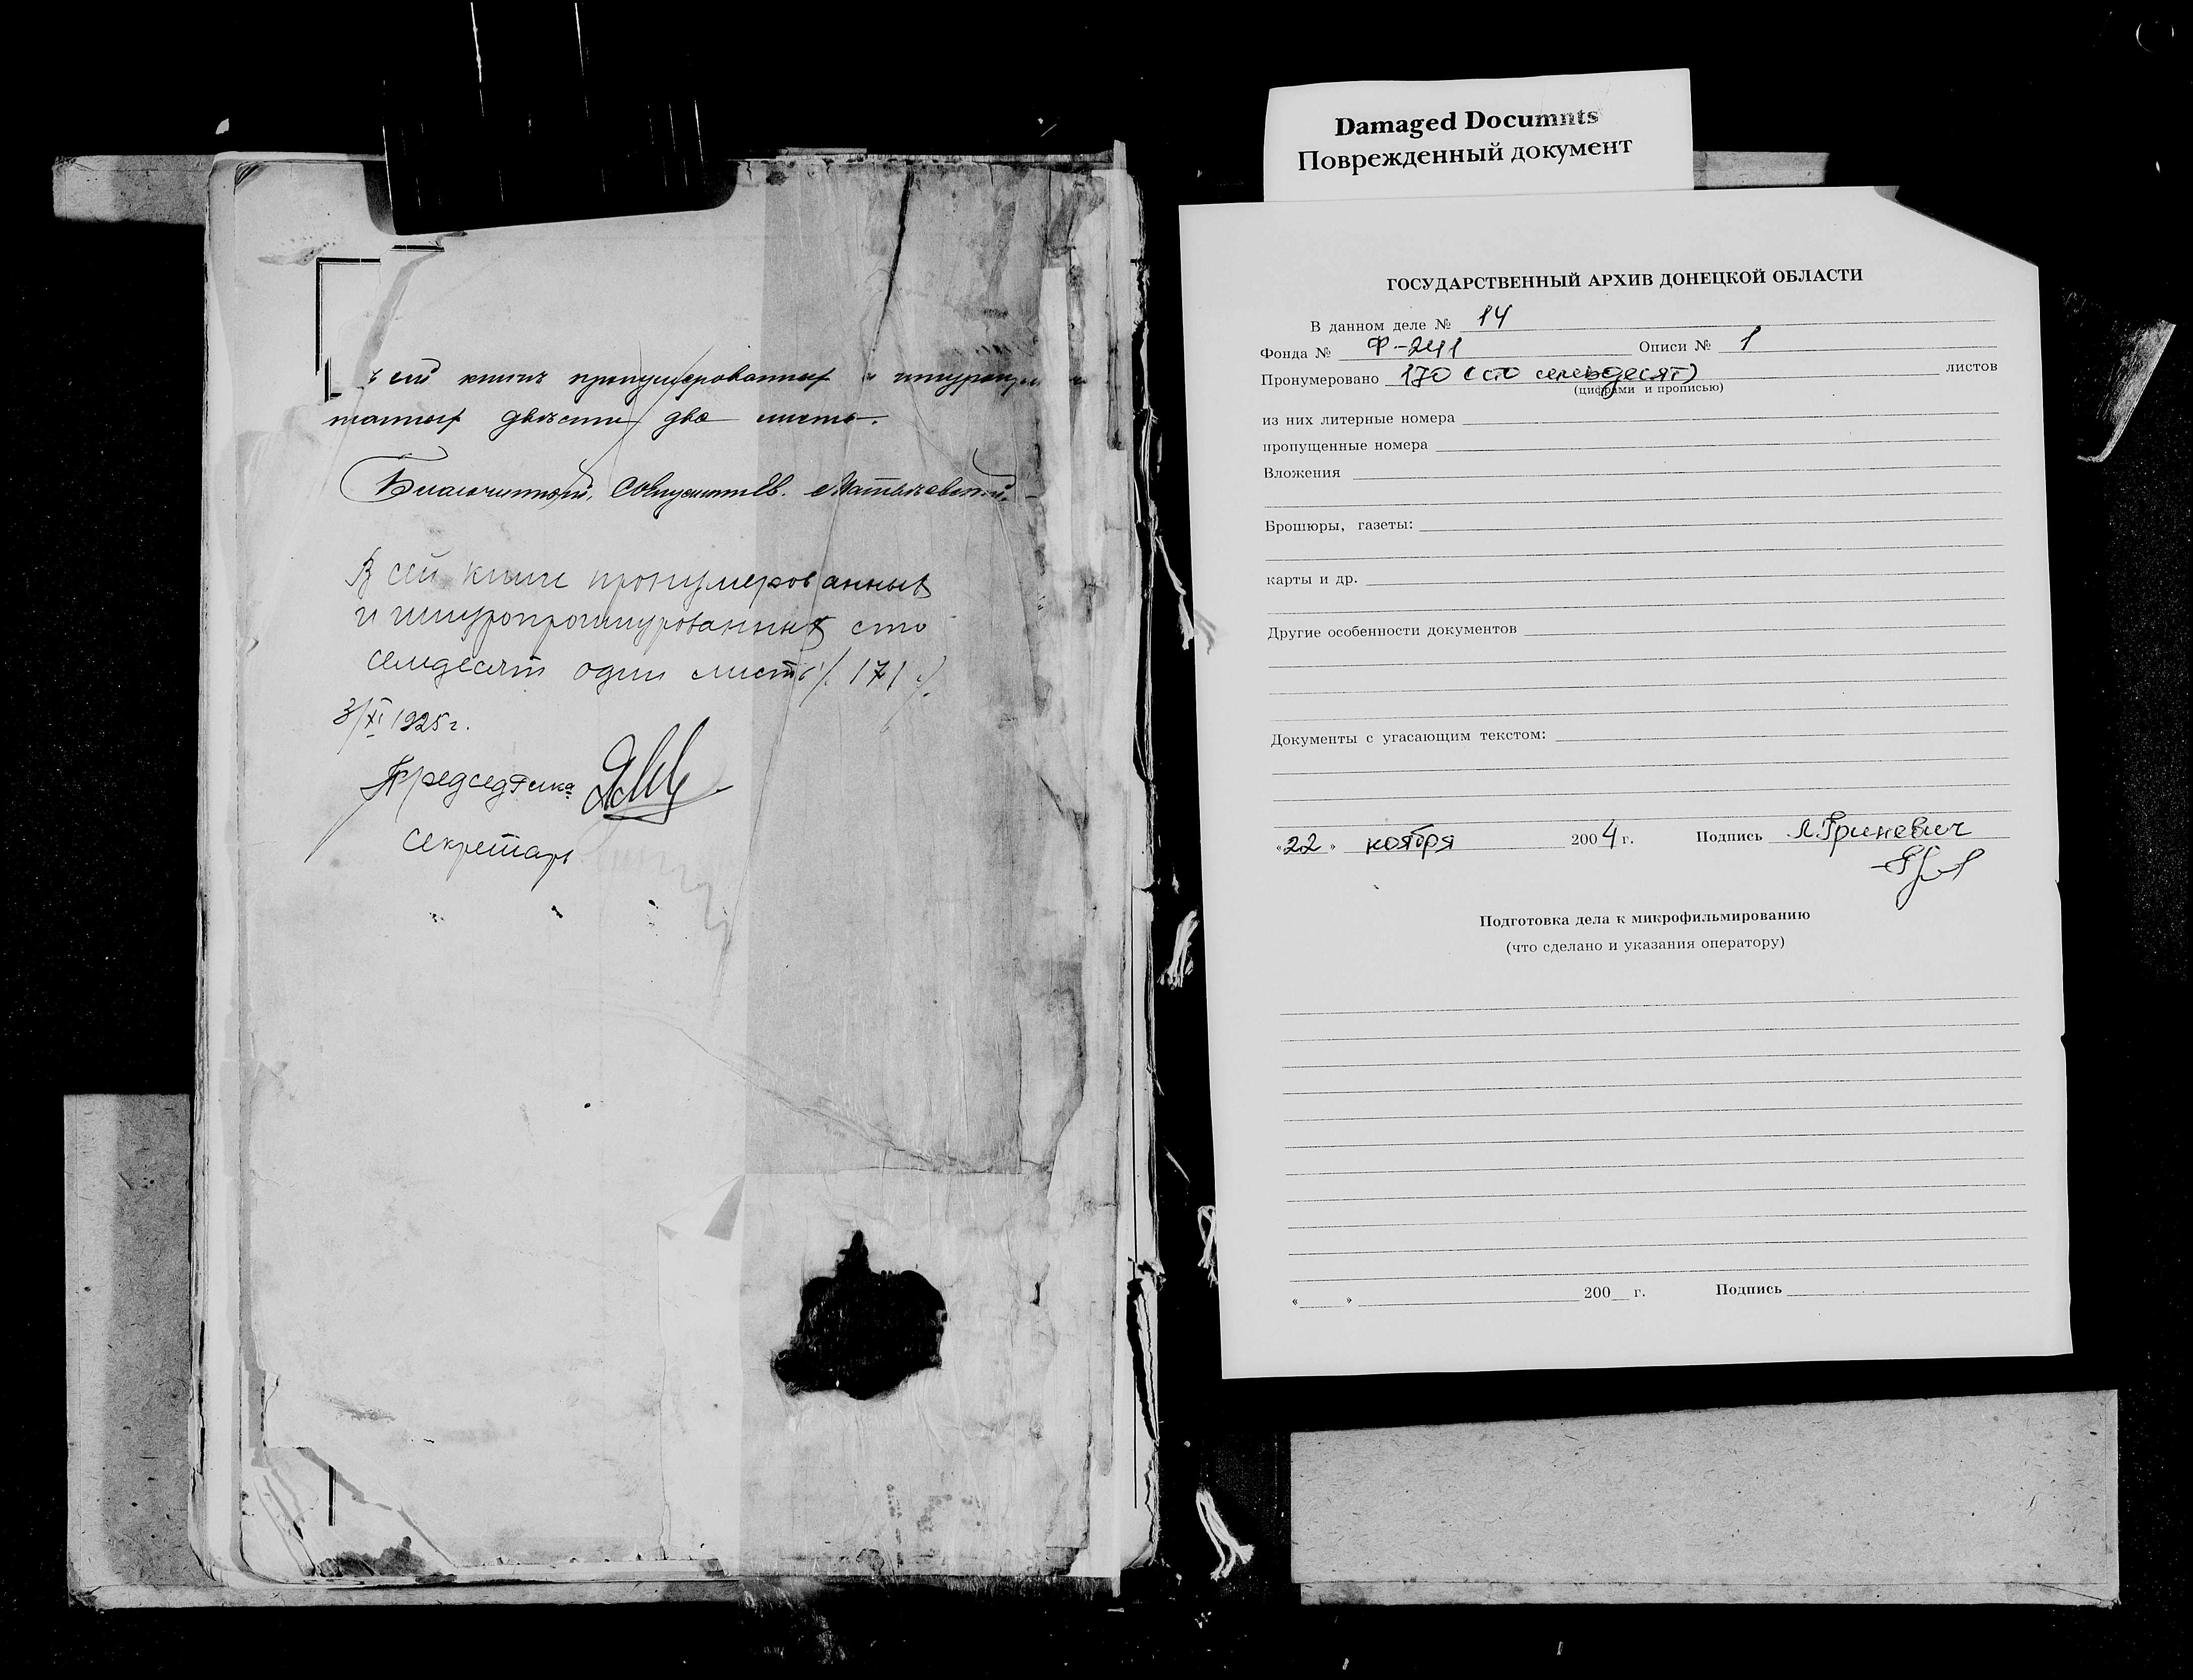 сей книгѣ пронумерованных и
двѣсти два листа.
Благочинный, Священникъ
В сей книге пронумерованных
и шнуропрошнурованных сто
семдесят один листъ /. 171 ./.
3/XI 1925 г.
Секретарь
Damaged Documnts
Поврежденный документ
ГОСУДАРСТВЕННЫЙ АРХИВ ДОНЕЦКОЙ ОБЛАСТИ
В данном деле № 14
Фонда № Ф-241 Описи № 1
Пронумеровано 170 (сто семьдесят) листов
(цифрами и прописью)
из них литерные номера
пропущенные номера
Вложения
Брошюры, газеты:
карты и др.
Другие особенности документов
Документы с угасающим текстом:
«22» ноября 2004 г. Подпись Л.Гриневич
Подготовка дела к микрофильмированию
(что сделано и указания оператору)
«___» 200__ г. Подпись